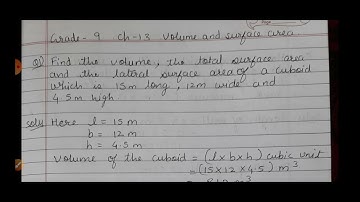 Grade - 9 Ch-13 Volume and surface area
Q) Find the volume, the total surface area
and the lateral surface area of a cuboid
which is 15m long, 12m wide and
4.5m high
Soln Here l = 15 m
b = 12 m
h = 4.5 m
Volume of the cuboid = (l×b×h) cubic unit
= (15×12×4.5) m³
= 810 m³